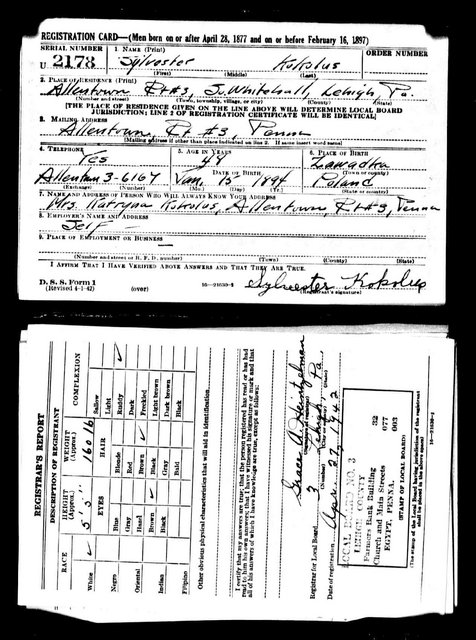 REGISTRATION CARD—(Men born on or after April 28, 1877 and on or before February 16, 1897)
SERIAL NUMBER 1. NAME (Print) ORDER NUMBER
U 2173 Sylvester Kokolus
(First) (Middle) (Last)
2. PLACE OF RESIDENCE (Print)
Allentown Rt #3, S. Whitehall, Lehigh, Pa.
(Number and street) (Town, township, village, or city) (County) (State)
[THE PLACE OF RESIDENCE GIVEN ON THE LINE ABOVE WILL DETERMINE LOCAL BOARD
JURISDICTION; LINE 2 OF REGISTRATION CERTIFICATE WILL BE IDENTICAL]
3. MAILING ADDRESS
Allentown, Rt #3, Penna
[Mailing address if other than place indicated on line 2. If same insert word same]
4. TELEPHONE 5. AGE IN YEARS 6. PLACE OF BIRTH
Yes 48 Zawadka
DATE OF BIRTH (Town or county)
Allentown 3-6167 Jan. 15 1894 Poland
(Exchange) (Number) (Mo.) (Day) (Yr.) (State or country)
7. NAME AND ADDRESS OF PERSON WHO WILL ALWAYS KNOW YOUR ADDRESS
Mrs. Katryna Kokolus, Allentown, Rt #3, Penna
8. EMPLOYER'S NAME AND ADDRESS
Self
9. PLACE OF EMPLOYMENT OR BUSINESS
(Number and street or R. F. D. number) (Town) (County) (State)
I AFFIRM THAT I HAVE VERIFIED ABOVE ANSWERS AND THAT THEY ARE TRUE.
D. S. S. Form 1
(Revised 4-1-42) (over) 16—21630-2 Sylvester Kokolus
(Registrant's signature)
REGISTRAR'S REPORT
DESCRIPTION OF REGISTRANT
RACE HEIGHT (Approx.) WEIGHT (Approx.) COMPLEXION
5 5 160 lb
White Sallow
EYES HAIR Light
Negro Blue Blonde Ruddy
Gray Red Dark
Oriental Hazel Brown Freckled
Brown Black Light brown
Indian Black Gray Dark brown
Bald Black
Filipino
Other obvious physical characteristics that will aid in identification
I certify that my answers are true; that the person registered has read or has had
read to him his own answers; that I have witnessed his signature or mark and that
all of his answers of which I have knowledge are true, except as follows:
Grace A. Heintzelman
Registrar for Local Board 3 Lehigh Pa
(Number) (City or county) (State)
Date of registration Apr 27 1942
LOCAL BOARD NO. 3 32
LEHIGH COUNTY 077
Farmers Bank Building 003
Church and Main Streets
EGYPT, PENNA.
(STAMP OF LOCAL BOARD)
(The stamp of the Local Board having jurisdiction of the registrant
shall be placed in the above space)
16—21630-1